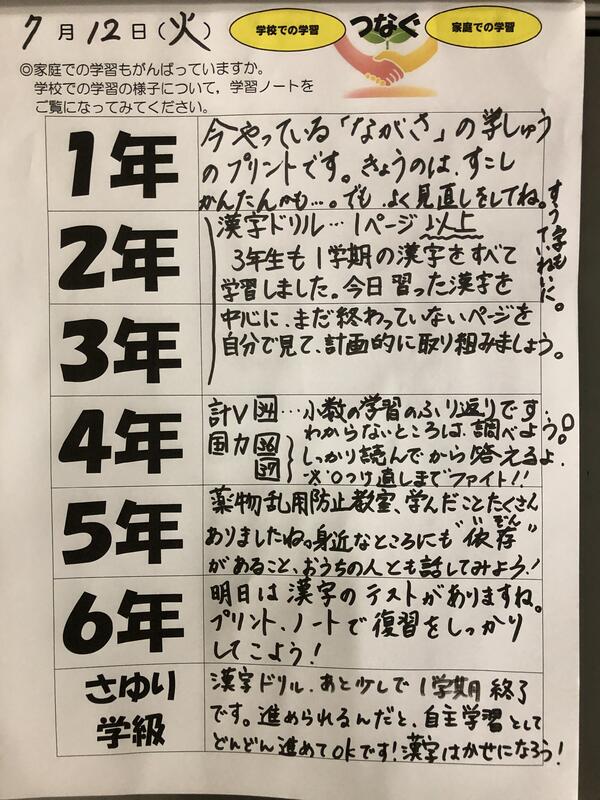 7月12日(火)
学校での学習 つなぐ 家庭での学習
◎家庭での学習もがんばっていますか。
学校での学習の様子について，学習ノートを
ご覧になってみてください。
1年
今やっている「ながさ」の学しゅう
のプリントです。きょうのは、すこし
かんたんかも…。でも よく見直しをしてね。
すう字も
ていねいに。
2年
3年
漢字ドリル…1ページ以上
3年生も1学期の漢字をすべて
学習しました。今日習った漢字を
中心に、まだ終わっていないページを
自分で見て、計画的に取り組みましょう。
4年
計V 34…小数の学習のふり返りです。
わからないところは、調べよう。
国力 36
37
しっかり読んでから答えるよ
※〇つけ直しまでファイト!!
5年
薬物乱用防止教室、学んだことたくさん
ありましたね。身近なところにも"依存"
いぞん
があること、おうちの人とも話してみよう!
6年
明日は漢字のテストがありますね。
プリント、ノートで復習をしっかり
してこよう!
さゆり
学級
漢字ドリル、あと少しで1学期終了
です。進められるんだと、自主学習として
どんどん進めてOKです!漢字はかせになろう!